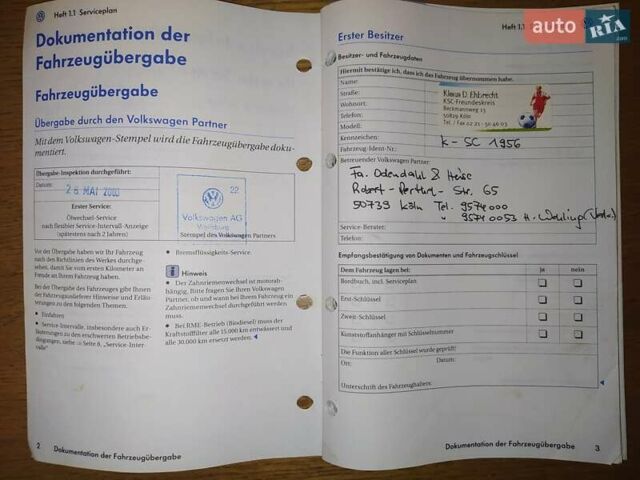 Heft 1.1 Serviceplan
Dokumentation der
Fahrzeugübergabe
Fahrzeugübergabe
Übergabe durch den Volkswagen Partner
Mit dem Volkswagen-Stempel wird die Fahrzeugübergabe doku-
mentiert.
Übergabe-Inspektion durchgeführt:
Datum:
28 MAI
Erster Service:
Ölwechsel-Service
nach flexibler Service-Intervall-Anzeige
(spätestens nach 2 Jahren)
22
Volkswagen AG
Wolfsburg
Stempel des Volkswagen Partners
Vor der Übergabe haben wir Ihr Fahrzeug
nach den Richtlinien des Werkes durchge-
sehen, damit Sie vom ersten Kilometer an
Freude an Ihrem Fahrzeug haben.
Bei der Übergabe des Fahrzeuges gibt Ihnen
der Fahrzeugauslieferer Hinweise und Erläu-
terungen zu den folgenden Themen.
• Einfahren
• Service-Intervalle, insbesondere auch Er-
läuterungen zu den erschwerten Betriebsbe-
dingungen, siehe ⇒ Seite 8, „Service-Inter-
valle“
• Bremsflüssigkeits-Service.
i Hinweis
• Der Zahnriemenwechsel ist motorab-
hängig. Bitte fragen Sie Ihren Volkswagen
Partner, ob und wann bei Ihrem Fahrzeug ein
Zahnriemenwechsel durchgeführt werden
muss.
• Bei RME-Betrieb (Biodiesel) muss der
Kraftstofffilter alle 15.000 km entwässert und
alle 30.000 km ersetzt werden.
2 Dokumentation der Fahrzeugübergabe
Heft 1.1
auto RIA
.com
Erster Besitzer
Besitzer- und Fahrzeugdaten
Hiermit bestätige ich, dass ich das Fahrzeug übernommen habe.
Name:
Straße:
Wohnort:
Telefon:
Modell:
Kennzeichen:
Fahrzeug-Ident-Nr.:
Klaus D. Ehbrecht
KSC-Freundeskreis
Beckmannweg 13
50829 Köln
K - SC 1956
Betreuender Volkswagen Partner:
Fa. Odendahl & Heise
Robert-Perthel-Str. 65
50739 Köln Tel. 9574000
Service-Berater:
Telefon:
Empfangsbestätigung von Dokumenten und Fahrzeugschlüssel
Dem Fahrzeug lagen bei: ja nein
Bordbuch, incl. Serviceplan
Erst-Schlüssel
Zweit-Schlüssel
Kunststoffanhänger mit Schlüsselnummer
Die Funktion aller Schlüssel wurde geprüft!
Ort: Datum:
Unterschrift des Fahrzeughalters:
Dokumentation der Fahrzeugübergabe 3